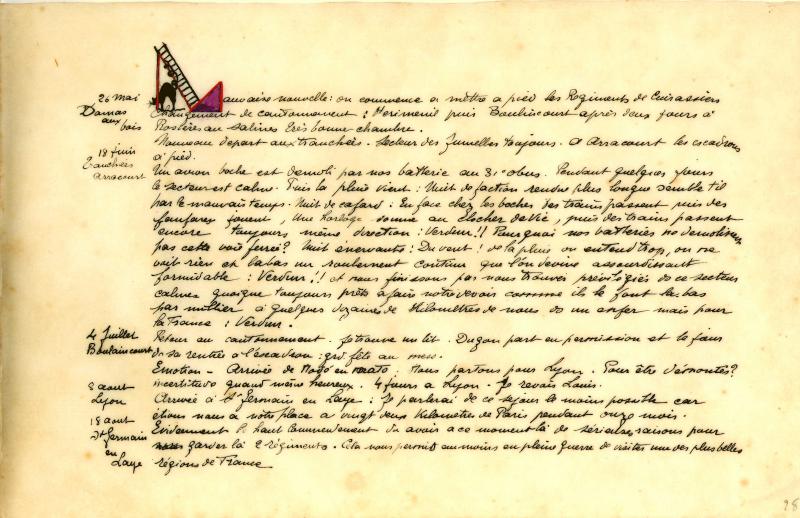 26 mai Mauvaise nouvelle : on commence à mettre à pied les Régiments de Cuirassiers
Damas aux bois Changement de cantonnement : Herimenil puis Baulricourt après deux jours à
Rosières au salines très bonne chambre.
18 juin Nouveau depart aux tranchées. Secteur des Jumelles toujours. a Arracourt les escadrons
Tranchées Arracourt à pied.
Un avion boche est demoli par nos batterie au 3e obus. Pendant quelques jours
le secteur est calme. Puis la pluie vient : Nuit de faction rendue plus longue semble t'il
par le mauvais temps. Nuit de cafard : En face chez les boches des trains passent puis des
fanfares jouent, une horloge sonne au Clocher de Vic, puis des trains passent
encore toujours même direction : Verdun !! Pourquoi nos batteries ne demolissent
pas cette voie ferrée ? Nuit énervante : Du vent ! de la pluie on entend trop, on ne
voit rien et labas un roulement continu que l'on devine assourdissant
formidable : Verdun !! et nous finissons par nous trouver privilégiés de ce secteur
calme quoique toujours prêts a faire notre devoir comme ils le font la-bas
par millier à quelques dizaines de Kilomètres de nous dans un enfer mais pour
la France : Verdun.
4 Juillet Retour au cantonnement. Je trouve un lit. Dugon part en permission et le
Boulaincourt de sa rentrée à l'escadron : grd fête au mess.
Emotion - Arrivée de : Nous partons pour Lyon. Pour être démontés ?
8 aout Lyon incertitude quand même heureux. 4 jours a Lyon. Je revois Louis.
Arrivée à St Germain en Laye : Je parlerai de ce sejour le moins possible car
18 aout étions nous à notre place a vingt deux Kilomètres de Paris pendant onze mois.
St Germain en Laye Evidemment le haut Commandement avait a ce moment là de sérieuses raisons pour
garder là 2 régiments. Cela nous permit au moins en pleine guerre de visiter une des plus belles
régions de France
98